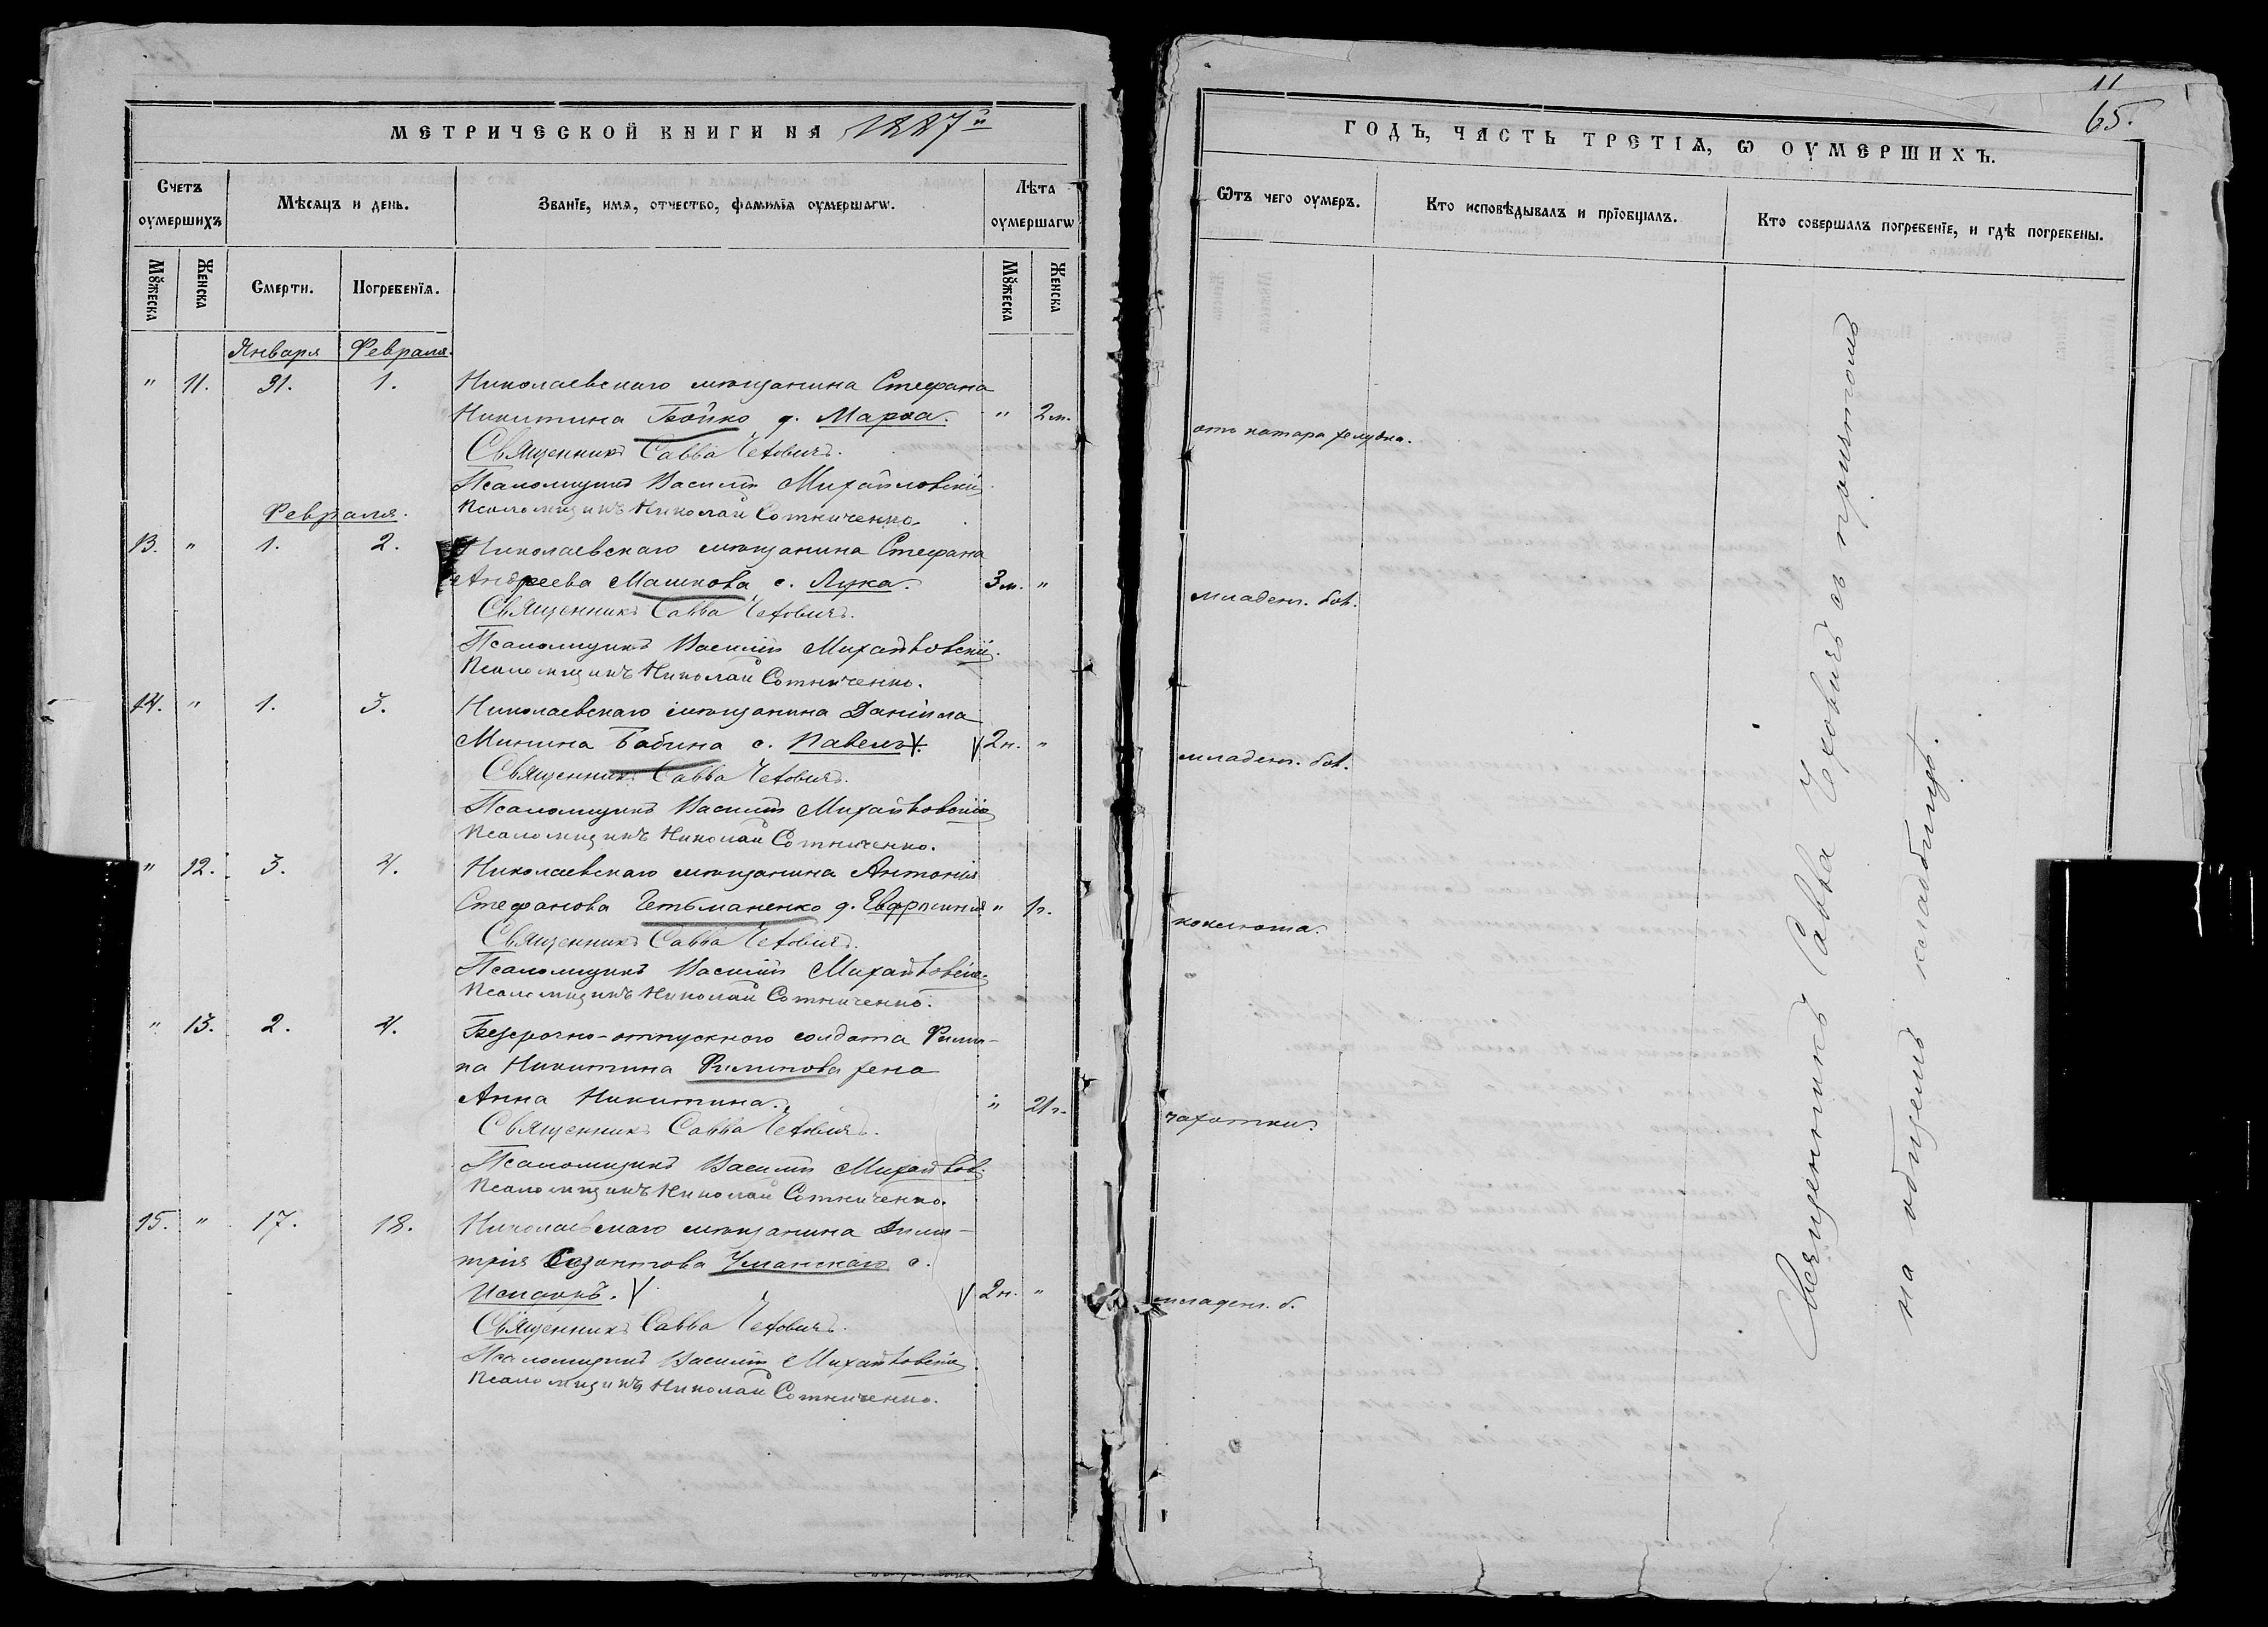 МЕТРИЧЕСКОЙ КНИГИ НА 1887й
Счетъ оумершихъ
Мѣсяцъ и день.
Званїе, имя, отчество, фамилїя оумершагѡ.
Лѣта оумершагѡ
Мꙋжеска
Женска
Смерти.
Погребенїя.
Мꙋжеска
Женска
Января Февраля.
" 11. 31. 1. Николаевскаго мѣщанина Стефана
Никитина Бойко д. Марѳа. " 2 м.
Священникъ Савва Чехович.
Псаломщикъ Василій Михайловскій
Псаломщикъ Николай Сотниченко.
Февраля.
13. " 1. 2. Николаевскаго мѣщанина Стефана
Андреева Машкова с. Лука. 3 м. "
Священникъ Савва Чехович.
Псаломщикъ Василій Михайловскій.
Псаломщикъ Николай Сотниченко.
14. " 1. 3. Николаевскаго мѣщанина Даніила
Минина Бабина с. Павелъ. 2 н. "
Священникъ Савва Чехович.
Псаломщикъ Василій Михайловскій
Псаломщикъ Николай Сотниченко.
" 12. 3. 4. Николаевскаго мѣщанина Антонія
Стефанова Гетьманенко д. Евфросинія " 1 г.
Священникъ Савва Чехович.
Псаломщикъ Василій Михайловскій
Псаломщикъ Николай Сотниченко.
" 13. 2. 4. Безсрочно-отпускного солдата Фили-
па Никитина Филипова жена
Анна Никитина. " 21 г.
Священникъ Савва Чехович.
Псаломщикъ Василій Михайлов.
Псаломщикъ Николай Сотниченко.
15. " 17. 18. Николаевскаго мѣщанина Дими-
трія Созонтова Уманскаго с.
2 н. "
Священникъ Савва Чехович.
Псаломщикъ Василій Михайловскій
Псаломщикъ Николай Сотниченко.
11
65.
ГОДЪ, ЧАСТЬ ТРЕТІѦ, Ѡ ОУМЕРШИХЪ.
Ѿтъ чего оумеръ.
Кто исповѣдывалъ и прїобщалъ.
Кто совершалъ погребенїе, и гдѣ погребены.
отъ катара желудка.
младен. бол.
младен. бол.
коклюша.
чахотки.
младен. б.
Священникъ Савва Чеховичъ съ причтомъ
на общемъ кладбищѣ.